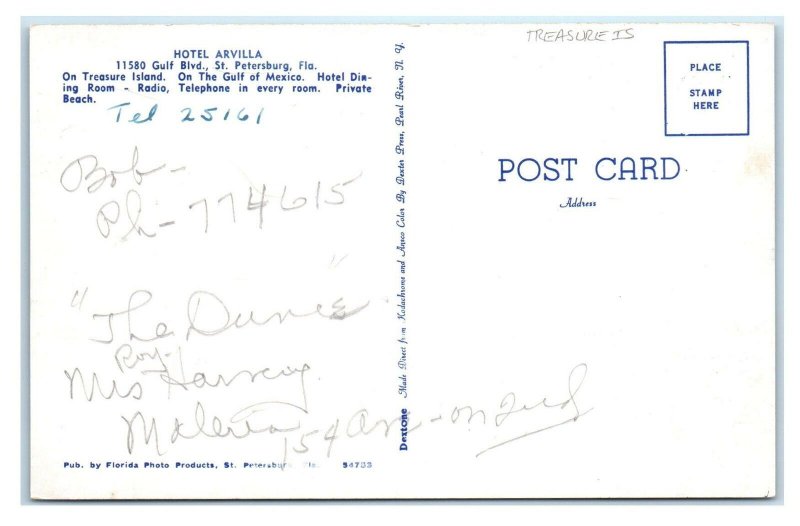 TREASURE IS
HOTEL ARVILLA
11580 Gulf Blvd., St. Petersburg, Fla.
On Treasure Island. On The Gulf of Mexico. Hotel Din-
ing Room - Radio, Telephone in every room. Private
Beach.
Tel 25161
Bob -
Ph - 774615
"The Dunes"
Roy
Mrs Harvey
154 - on 2nd
Pub. by Florida Photo Products, St. Petersburg, Fla. 54733
Dextone Made Direct from Kodachrome and Ansco Color By Dexter Press, Pearl River, N. Y.
PLACE
STAMP
HERE
POST CARD
Address